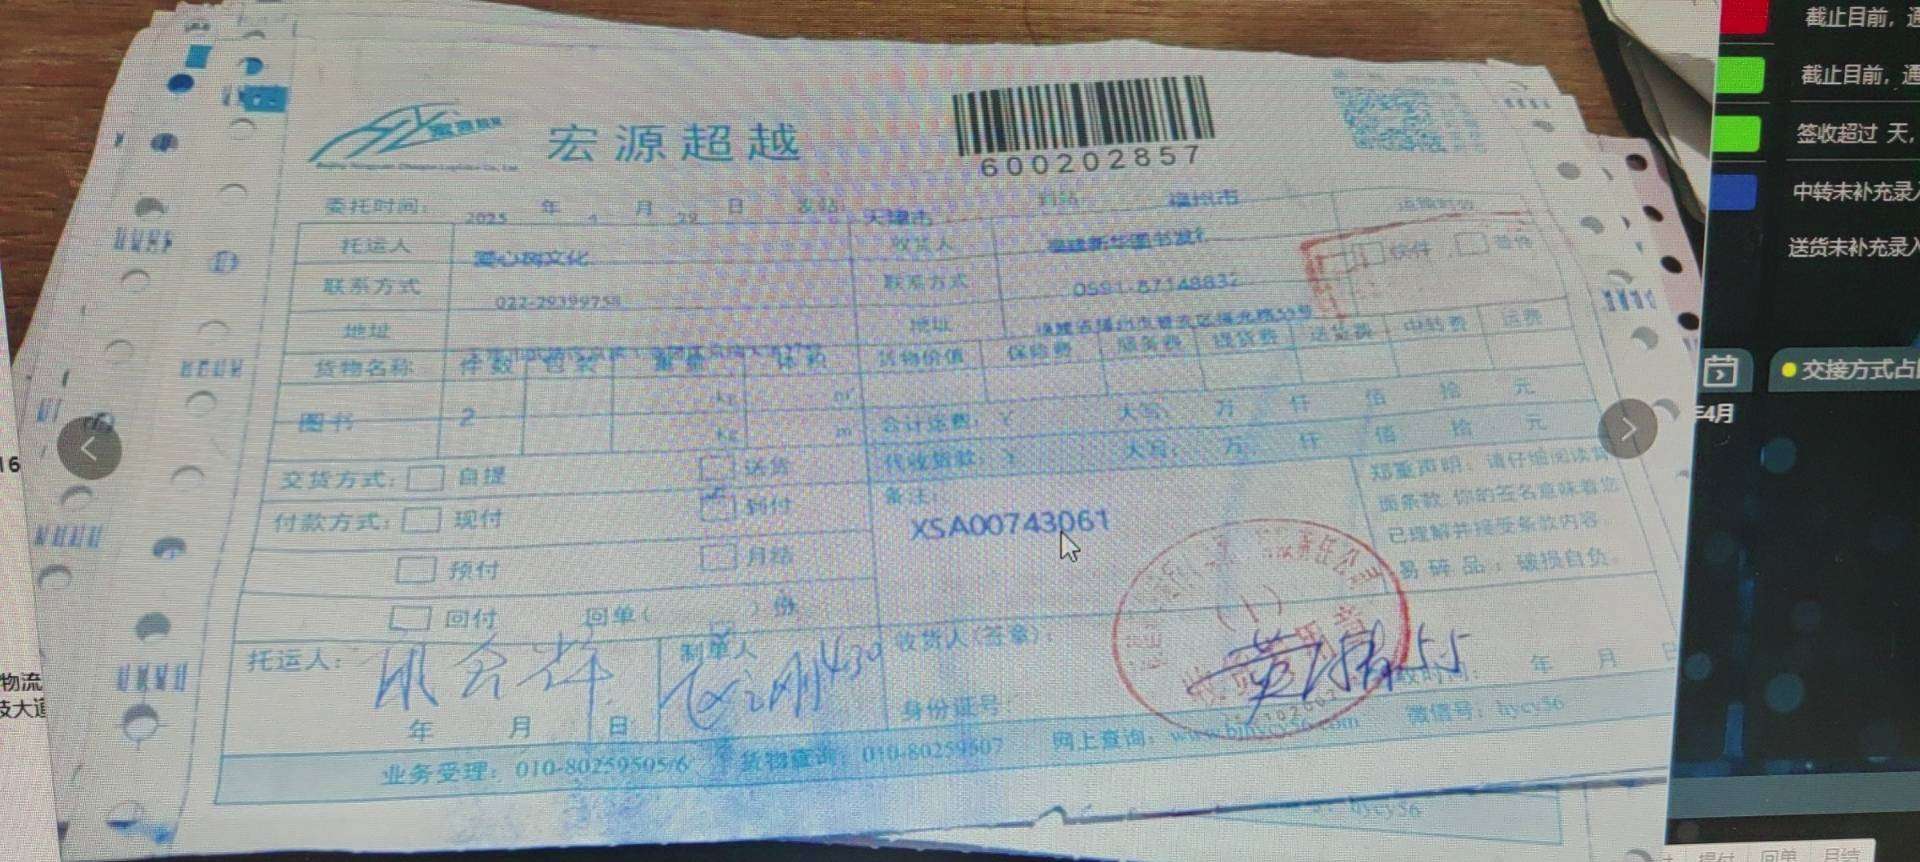 宏源超越
600202857
委托时间: 2025 年 4 月 29 日 发站: 天津市 到站: 福州市
托运人 爱心树文化 收货人 福建新华图书发行
联系方式 022-29399758 联系方式 0591-87148832
地址 地址
货物名称 件数 包装 重量 体积 货物价值 保险费 服务费 提货费 送货费 中转费 运费
图书 2 kg m
kg m
合计运费: ¥ 大写: 万 仟 佰 拾 元
代收货款: ¥ 大写: 万 仟 佰 拾 元
交货方式: 自提 送货
付款方式: 现付 到付
预付 月结
回付 回单( )份
备注:
XSA00743061
郑重声明: 请仔细阅读背
面条款,你的签名意味着您
已理解并接受条款内容。
易碎品,破损自负。
托运人: 制单人 430 收货人(签章): 5.5
年 月 日
身份证号: 年 月 日
业务受理: 010-80259505/6 货物查询: 010-80259507 网上查询: www.bjhycy56.com 微信号: hycy56
hycy56
截止目前,通
截止目前,通
签收超过 天,
中转未补充录入
送货未补充录入
交接方式占
年4月
16
物流
技大道
提付 回单 月结